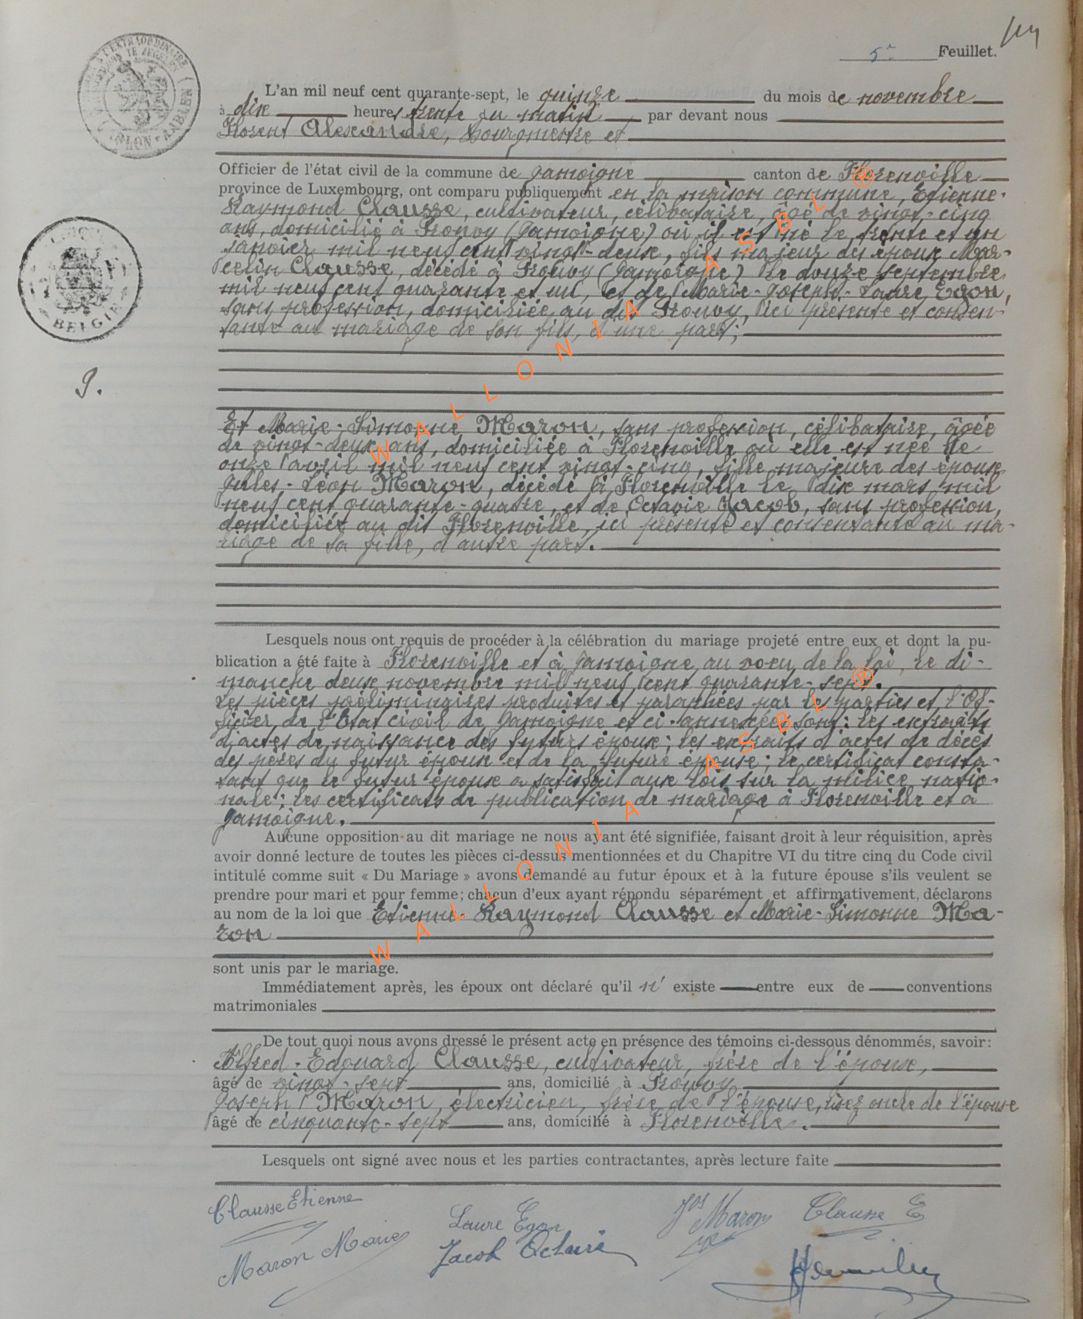 5e Feuillet.
L'an mil neuf cent quarante-sept, le quinze du mois de novembre
à dix heures trente du matin par devant nous
Florent Alexandre, bourgmestre et
Officier de l'état civil de la commune de Jamoigne canton de Florenville
province de Luxembourg, ont comparu publiquement en la maison commune, Etienne-
Raymond Clausse, cultivateur, célibataire, âgé de vingt-cinq
ans, domicilié à Prouvy (Jamoigne) où il est né le trente et un
janvier mil neuf cent vingt-deux, fils majeur des époux Mar-
celin Clausse, décédé à Prouvy (Jamoigne) le douze septembre
mil neuf cent quarante et un, et de Marie-Joseph-Laure Egon,
sans profession, domiciliée au dit Prouvy, ici présente et consen-
tante au mariage de son fils, d'une part;
9.
BELGIE
Et Marie-Simonne Maron, sans profession, célibataire, âgée
de vingt-deux ans, domiciliée à Florenville où elle est née le
onze avril mil neuf cent vingt-cinq, fille majeure des époux
Jules-Léon Maron, décédé à Florenville le dix mars mil
neuf cent quarante-quatre, et de Octavie Jacob, sans profession,
domiciliée au dit Florenville, ici présente et consentante au ma-
riage de sa fille, d'autre part.
Lesquels nous ont requis de procéder à la célébration du mariage projeté entre eux et dont la pu-
blication a été faite à Florenville et à Jamoigne, au voeu de la loi, le di-
manche deux novembre mil neuf cent quarante-sept.
Les pièces préliminaires produites et paraphées par les parties et l'Of-
ficier de l'Etat civil de Jamoigne et ci-annexées sont: les extraits
d'actes de naissance des futurs époux; les extraits d'actes de décès
des pères du futur époux et de la future épouse; le certificat consta-
tant que le futur époux a satisfait aux lois sur la milice natio-
nale; les certificats de publication de mariage à Florenville et à
Jamoigne.
Aucune opposition au dit mariage ne nous ayant été signifiée, faisant droit à leur réquisition, après
avoir donné lecture de toutes les pièces ci-dessus mentionnées et du Chapitre VI du titre cinq du Code civil
intitulé comme suit « Du Mariage » avons demandé au futur époux et à la future épouse s'ils veulent se
prendre pour mari et pour femme; chacun d'eux ayant répondu séparément et affirmativement, déclarons
au nom de la loi que Etienne-Raymond Clausse et Marie-Simonne Ma-
ron
sont unis par le mariage.
Immédiatement après, les époux ont déclaré qu'il n' existe entre eux de conventions
matrimoniales
De tout quoi nous avons dressé le présent acte en présence des témoins ci-dessous dénommés, savoir:
Alfred-Edouard Clausse, cultivateur, frère de l'époux,
âgé de vingt-sept ans, domicilié à Prouvy
Joseph Maron, électricien, frère de l'épouse, lisez oncle de l'épouse
âgé de cinquante-sept ans, domicilié à Florenville.
Lesquels ont signé avec nous et les parties contractantes, après lecture faite
Clausse Etienne
Laure Egon
Jos Maron
Clausse E
Maron Marie
Jacob Octavie
WALLONIA ASBL ®
WALLONIA ASBL ®